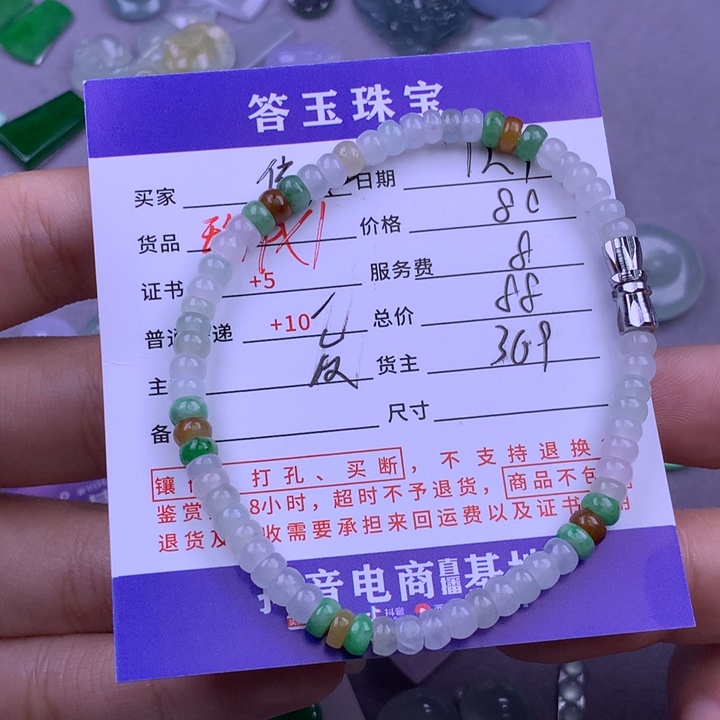 答玉珠宝
买家 日期
货品 价格 80
证书 +5 服务费 8
普通 递 +10 总价 88
主 货主 309
备 尺寸
镶 打孔、买断，不支持退换
鉴赏 8小时，超时不予退货，商品不包
退货及 收需要承担来回运费以及证书
音电商直播基地
抖音